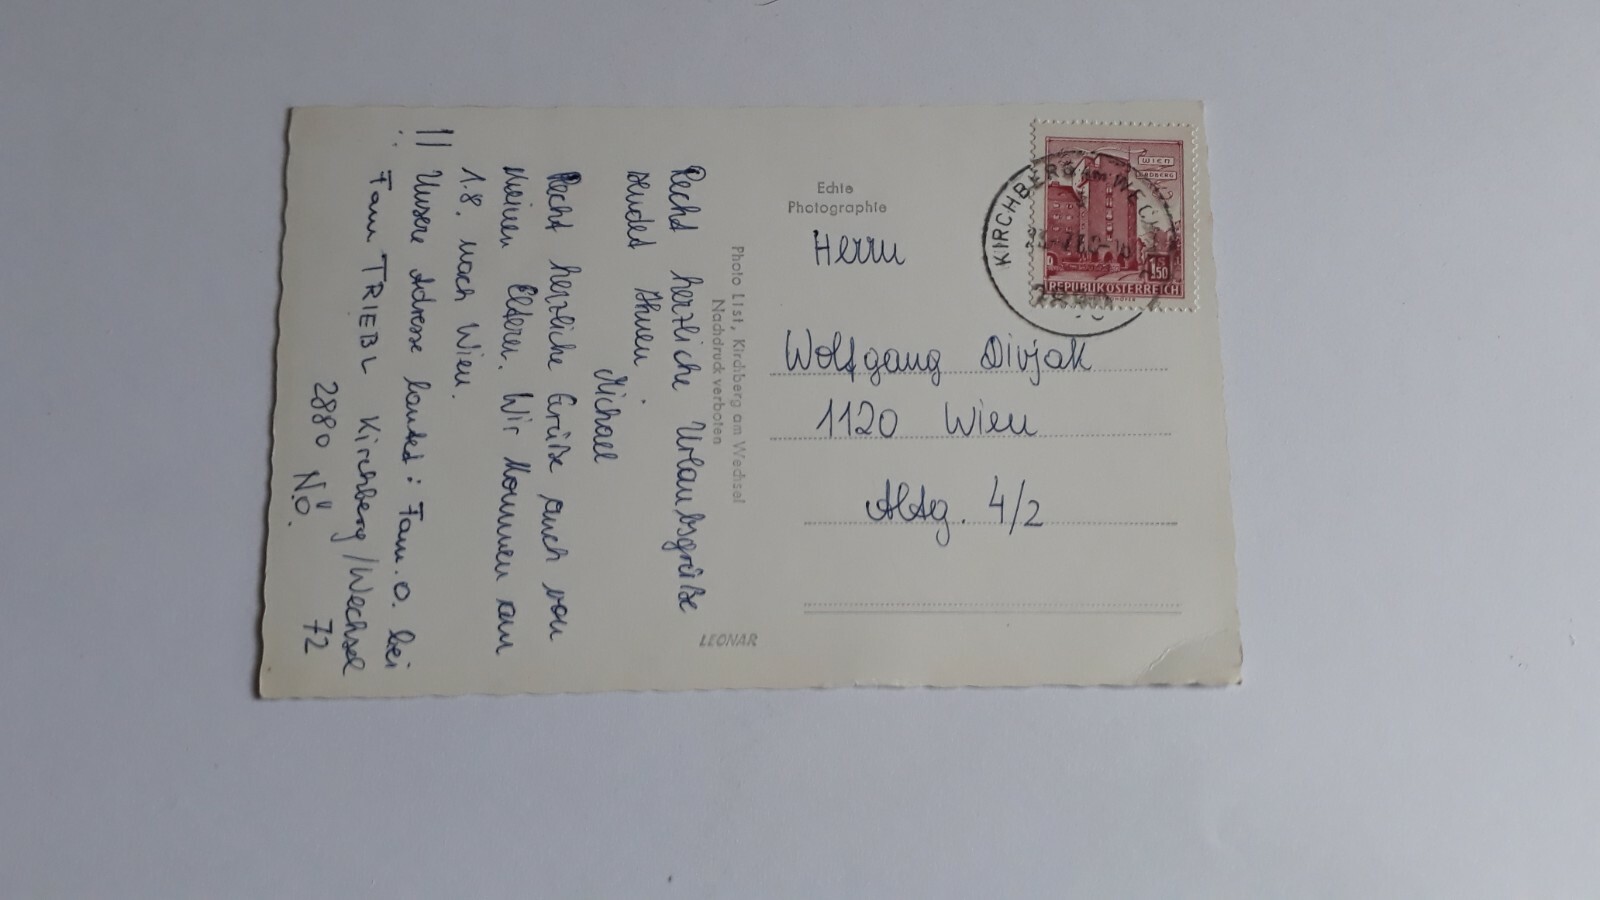 Recht herzliche Urlaubsgrüße
sendet Ihnen
Michael
Recht herzliche Grüße auch von
meinen Eltern. Wir kommen am
1.8. nach Wien.
!!
Unsere Adresse lautet: Fam. O. bei
Fam TRIEBL Kirchberg/Wechsel
2880 N.Ö. 72
Photo List, Kirchberg am Wechsel
Nachdruck verboten
LEONAR
Echte
Photographie
Herrn
Wolfgang Divjak
1120 Wien
4/2
WIEN
ERDBERG
1,50
REPUBLIK ÖSTERREICH
KIRCHBERG AM WECHSEL